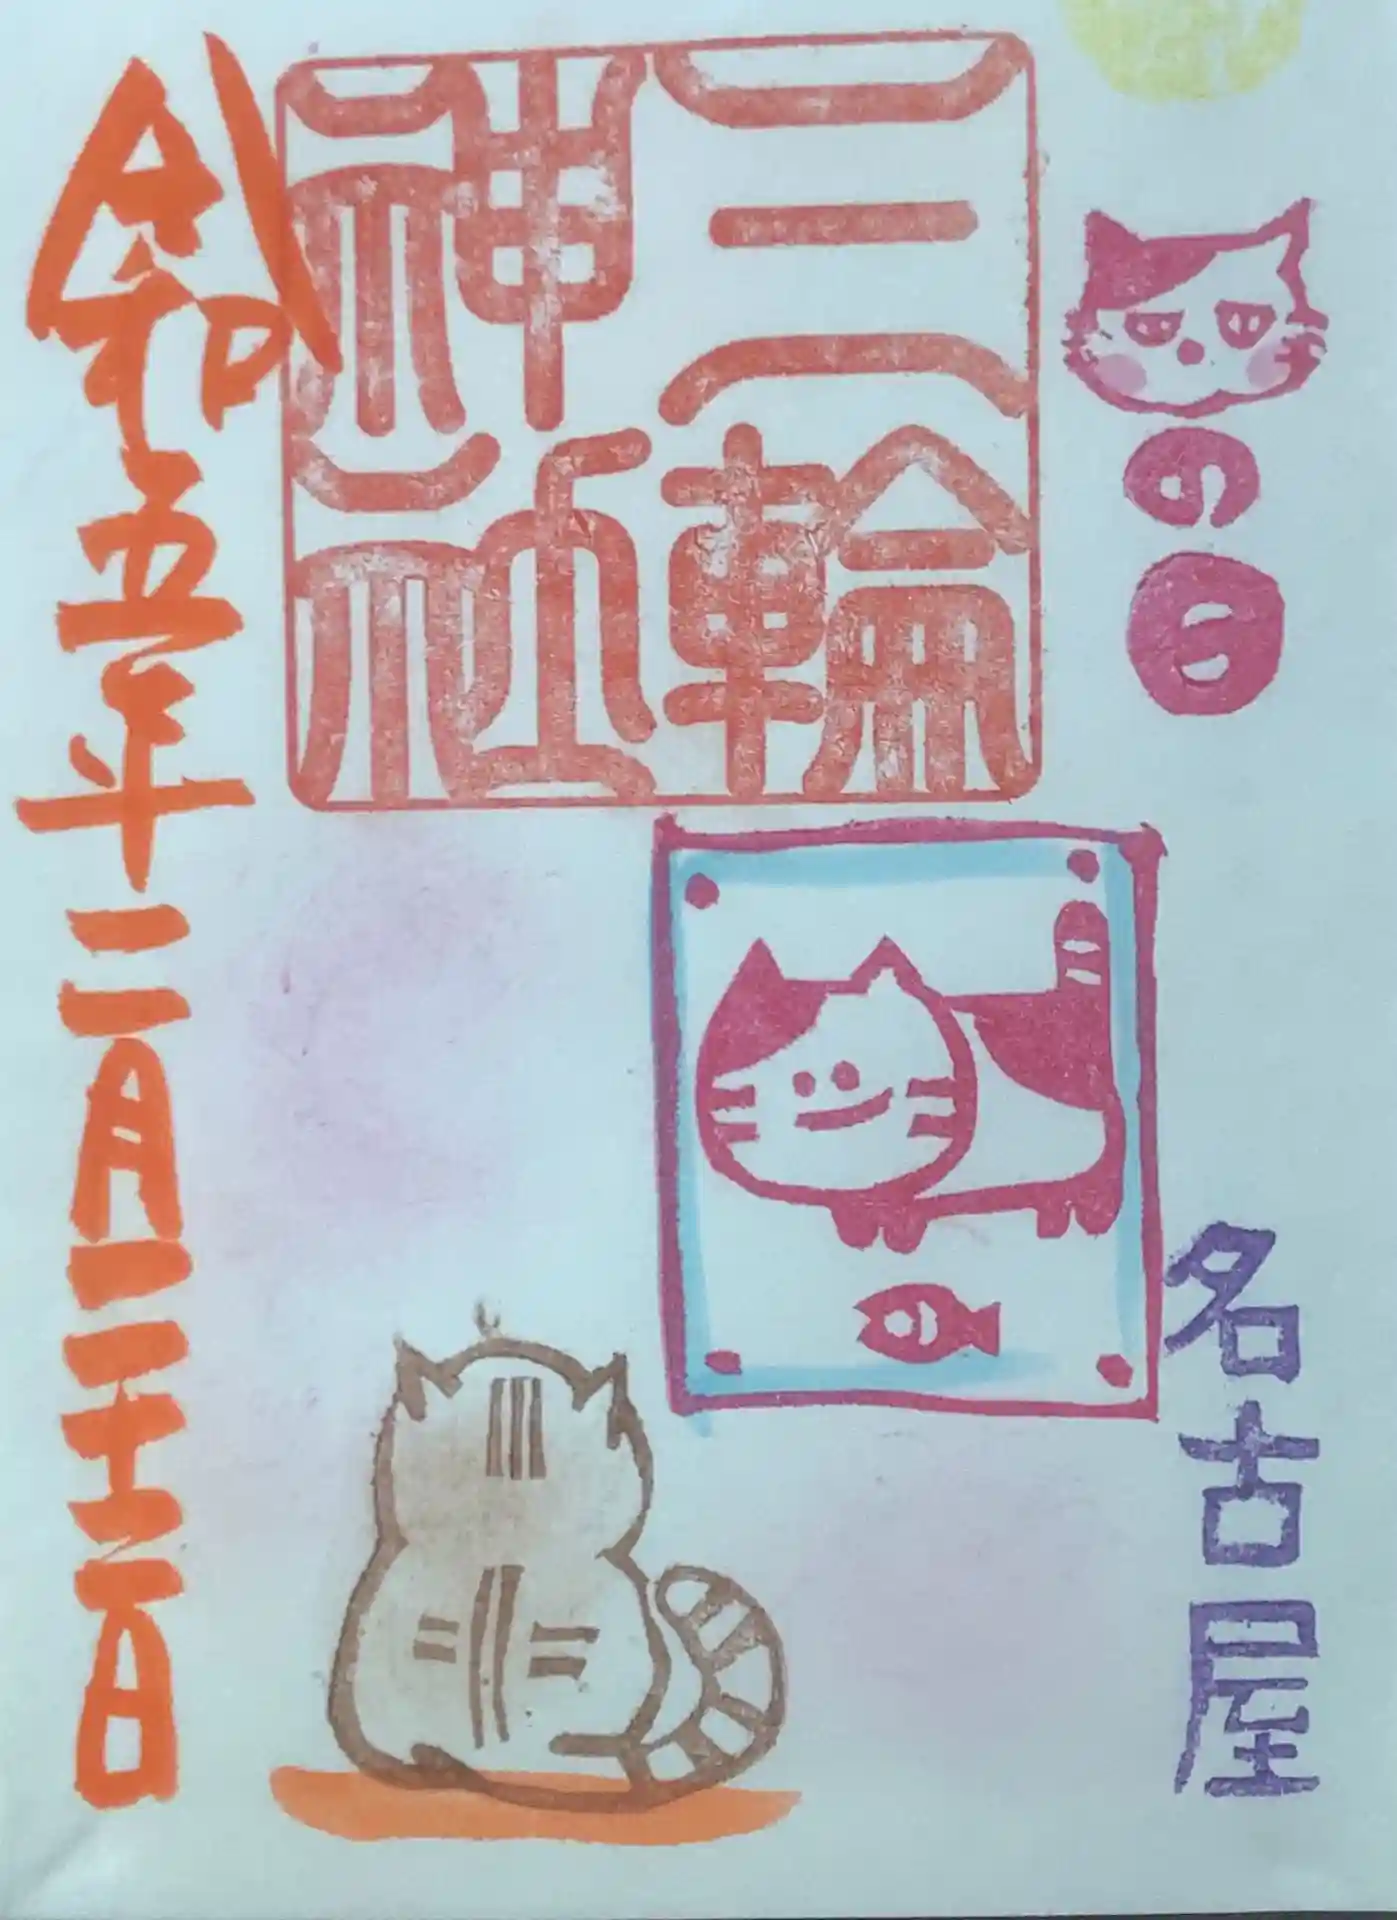 の日
名古屋
三輪
神社
令和五年二月二十二日